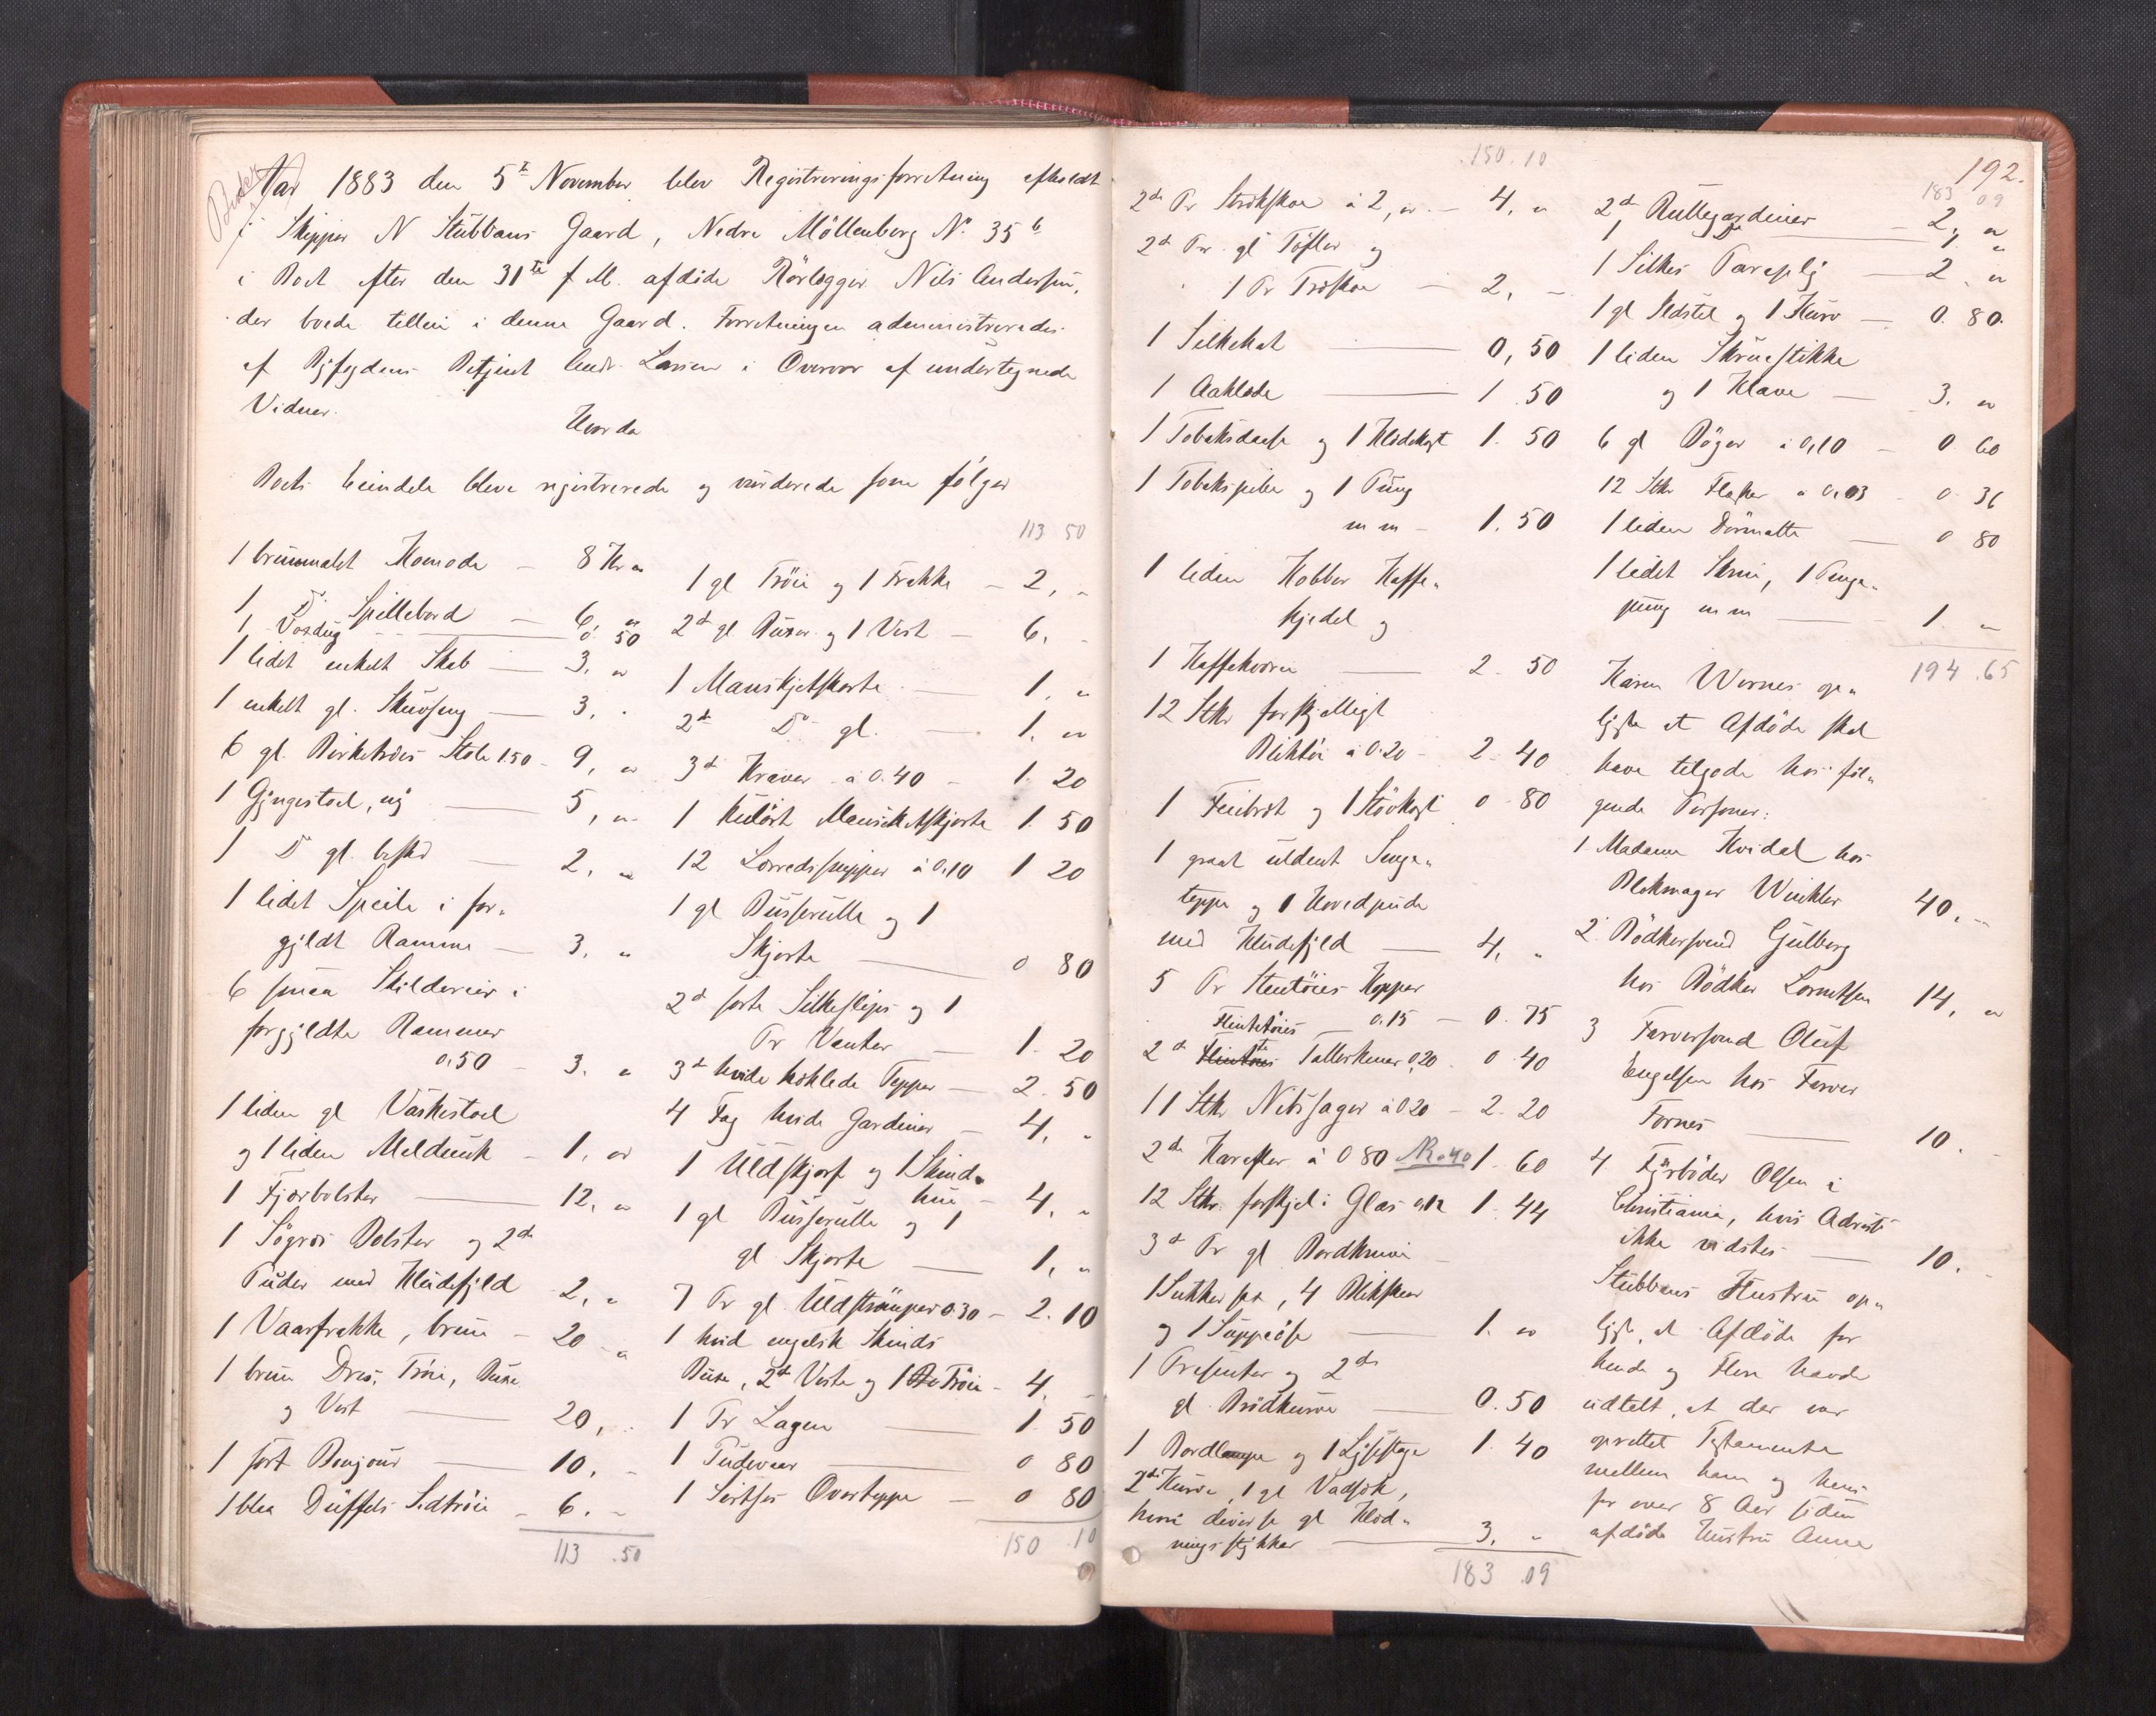 Aar 1883 den 5t November blev Registreringsforretning afholdt
i Skipper N Stubbans Gaard, Nedre Möllenberg No 35 b
i Boet efter den 31te f. M. afdöde Rörlægger Nils Andersen,
der boede tilleie i denne Gaard. Forretningen administreredes
af Byfogdens Betjent Andr. Larsen i Overvær af undertegnede
Vidner.
Hvorda
Boets Eiendele bleve registrerede og vurderede som fölger
1 brunmalet Komode – 8 Kr "
1 Do Spillebord – 6, "
1 Voxdug – 0 50
1 lidet enkelt Skab – 3, "
1 enkelt gl. Skuvseng – 3, "
6 gl. Birketræs Stole 1.50 – 9, "
1 Gyngestoel, ny – 5, "
1 Do gl. – 2, "
1 lidet Speile i for-
gyldt Ramme – 3, "
6 smaa Skilderier i
forgyldte Rammer
0.50 – 3. "
1 liden gl Vaskestoel
og 1 liden – 1, "
1 Fjærbolster – 12, "
1 Bolster og 2de
Puder med Kludefyld 2, "
1 Vaarfrakke, brun – 20 "
1 brun Dres; Tröie, Buxe
og Vest – 20, "
1 sort Bonjour – 10. –
1 blaa Duffels Sidtröie – 6. –
113 .50
113 50
1 gl Tröie og 1 Frakke – 2, "
2de gl Buxer og 1 Vest – 6. –
1 Manskjetskorte – 1. "
2de Do gl. – 1. "
3de Kraver à 0.40 – 1. 20
1 kulört Manskjetskjorte 1. 50
12 Lærredssnipper à 0,10 1 20
1 gl Busserulle og 1
Skjorte – 0 80
2de sorte Silkeslips og 1
Pr Vanter – 1. 20
3de hvide hæklede Tepper – 2. 50
4 Fag hvide Gardiner – 4. "
1 Uldskjorf og 1 Skind-
hue – 4. "
1 gl Busserulle og 1
gl Skjorte – 1, "
7 Pr gl. Uldströmper 0.30 – 2. 10
1 hvid engelsk Skinds
Buxe, 2de Veste og 1 Tröie – 4. –
1 Pr Lagen – 1 50
1 Pudevaar – 0 80
1 Sirtses Overteppe – 0 80
150 .10
192.
150.10
2de Pr à 2, " – 4, "
2de Par gl Töfler og
1 Pr Træskoe – 2, –
1 Silkehat – 0, 50
1 Aaklæde – 1 50
1 Tobaksdaase og 1 Klædekost 1. 50
1 Tobakspibe og 1 Pung
m m – 1. 50
1 liden Kobber Kaffe-
kjedel og
1 Kaffekværn – 2. 50
12 Stkr forskjelligt
Bliktöi à 0.20 – 2. 40
1 Feiebræt og 1 Stövkost 0. 80
1 graat uldent Senge-
teppe og 1 Hovedpude
med Kludefyld – 4, "
5 Pr Stentöies Kopper
0.15 – 0. 75
Flintetöies
2de Tallerkener 0,20 . 0 40
11 Stkr à 0.20 – 2. 20
2de Karafler à 0 80 1. 60
12 Stkr forskjel: Glas 0.12 1. 44
3de Pr gl Bordknive –
1 Sukker, 4 Blikskeer
og 1 Suppeöse – 1. "
1 Presenter og 2de
gl. Brödkurve – 0. 50
1 Bordlampe og 1 Lysestage 1. 40
2de Kurve, 1 gl Vadsæk,
hvori diverse gl Klæd-
ningsstykker – 3. "
183 .09
183 09
2de Rullegardiner – 2, "
1 – 1. "
1 Silkes Paraply – 2 "
1 gl Ildstel og 1 Kurv – 0. 80.
1 liden Skruestikke
og 1 Klave – 3. "
6 gl Böger à 0,10 – 0 60
12 Stkr Flasker à 0.03 – 0. 36
1 liden Dörmatte – 0 80
1 lidet Skrin, 1 Penge-
pung m m – 1. "
194 .65
Karen Wernes op-
lyste at Afdöde skal
have tilgode hos föl-
gende Personer:
1 Madame Kvidal hos
Blokmager Winkler 40. –
2 Bödkersvend Gulberg
hos Bödker Lorentsen 14, "
3 Farversvend Oluf
Engelsen hos Farver
Fornes – 10. –
4 Fyrböder Olsen i
Christiania, hvis Adresse
ikke vidstes – 10. –
Stubbans Hustru op-
lyste, at Afdöde for
hende og Flere havde
udtalt, at der var
oprettet Testamente
mellem ham og hans
for over 8 Aar siden
afdöde Hustru Anne